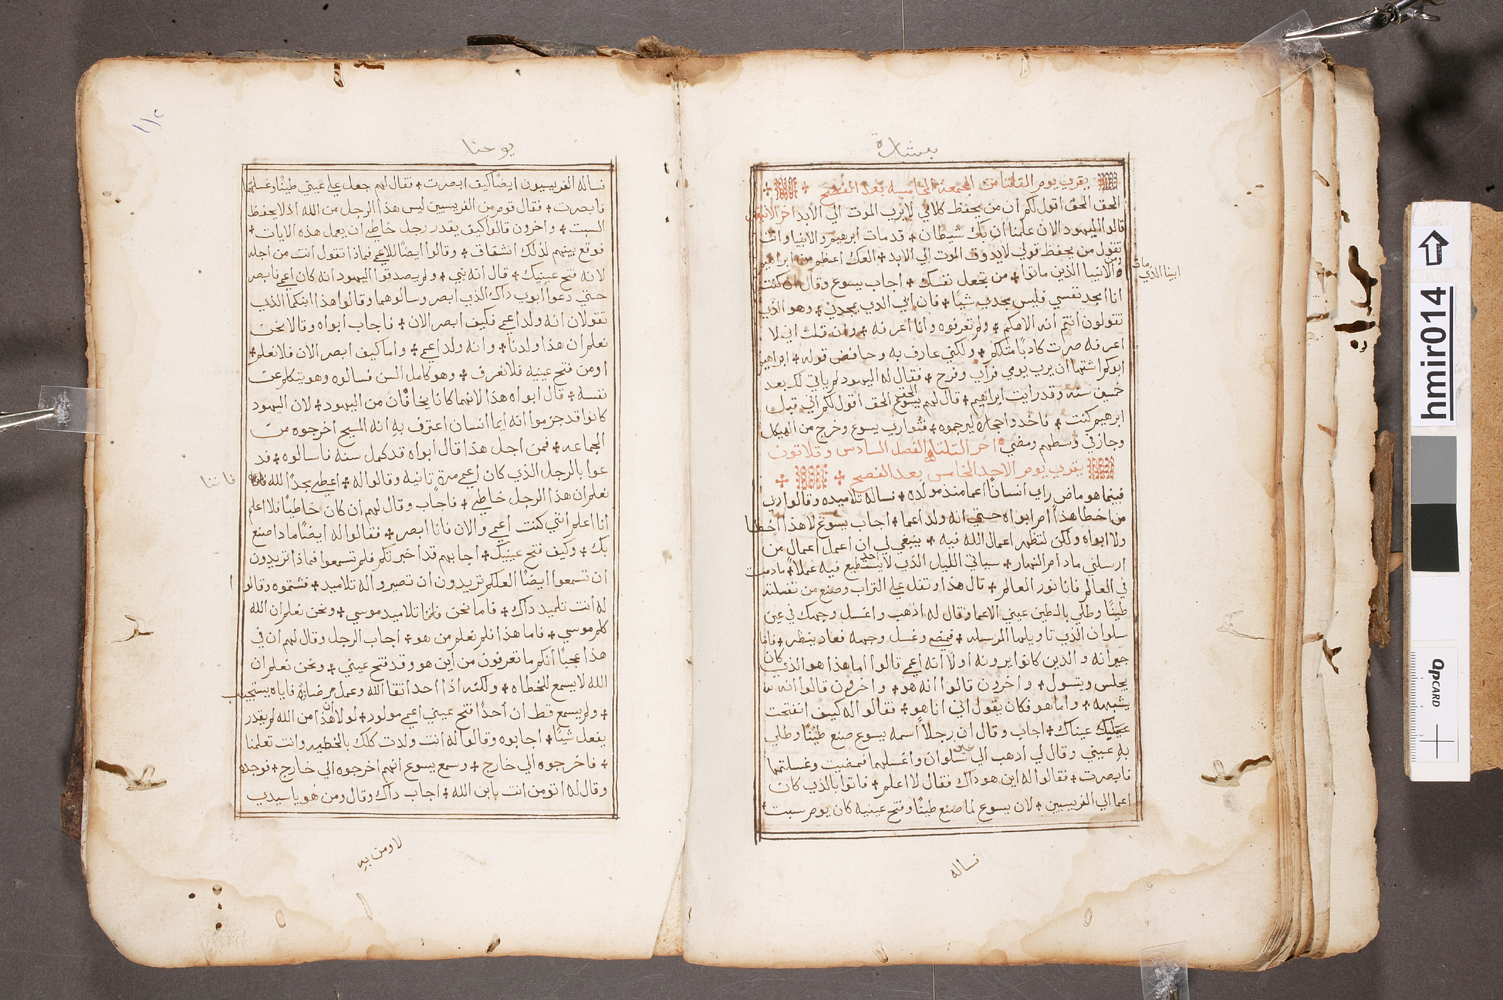 بشارة
يقرب يوم الثلثا من الجمعة الخامسة بعد الفصح
الحق الحق اقول لكم ان من يحفظ كلامي لا يرى الموت الى الابد
قالوا اليهود الان علمنا ان بك شيطان قد مات ابرهيم والانبيا وانت
تقول من يحفظ قولي لا يذوق الموت الى الابد العلك اعظم من ابراهيم
والانبيا الذين ماتوا من تجعل نفسك اجاب يسوع وقال ان كنت
ابينا الذي مات
انا امجد نفسي فليس مجدي شيا فان ابي الذي يمجدني وهو الذي
تقولون انتم انه الاهكم ولم تعرفوه وانا اعرفه وان قلت اني لا
اعرفه صرت كاذبا مثلكم ولكني عارف به وحافض قوله ابراهيم
ابوكم اشتها ان يرى يومي فراى وفرح فقال له اليهود لم ياتي لك بعد
خمسون سنه وقد رايت ابراهيم قال لهم يسوع الحق اقول لكم اني قبل
ابرهيم كنت فاخذوا حجاره ليرجموه فتوارى يسوع وخرج من الهيكل
وجاز في وسطهم ومضى اخر الثلثا الفصل السادس وثلاثون
يقرب يوم الاحد الخامس بعد الفصح
فبينما هو ماض راى انسانًا اعما منذ مولده فساله تلاميده وقالوا يا رب
من اخطا هذا ام ابواه حتى انه ولد اعما اجاب يسوع لا هذا اخطا
ولا ابواه ولكن لتظهر اعمال الله فيه ينبغي لي ان اعمل اعمال من
ارسلني ما دام النهار سياتي الليل الذي لا يستطيع احد فيه عملا ما دمت
في العالم فانا نور العالم قال هذا وتفل على التراب وصنع من تفلته
طينًا وطلى بالطين عيني الاعما وقال له اذهب واغسل وجهك في عين
سلوان الذي تاويلها المرسله فمضى وغسل وجهه فعاد ينظر فاما
جيرانه والذين كانوا يرونه اولا انه اعمى قالوا اما هذا هو الذي كان
يجلس ويتسول واخرون قالوا انه هو واخرون قالوا انه
يشبهه واما هو فكان يقول اني انا هو فقالوا له كيف انفتحت
عيناك اجاب وقال ان رجلًا اسمه يسوع صنع طينًا وطلى
به عيني وقال لي اذهب الى سلوان واغسلهما فمضيت وغسلتهما
فابصرت فقالوا له اين هو ذاك فقال لا اعلم فاتوا بالذي كان
اعما الى الفريسيين لان يسوع لما صنع طينًا وفتح عينيه كان يوم سبت
فساله
يوحنا
١١٢
فساله الفريسيون ايضًا كيف ابصرت فقال لهم جعل على عيني طينًا وغسلتهما
فابصرت فقال قوم من الفريسيين ليس هذا الرجل من الله اذ لا يحفظ
السبت واخرون قالوا كيف يقدر رجل خاطي ان يعل هذه الايات
فوقع بينهم لذلك انشقاق وقالوا ايضًا للاعمى فماذا تقول انت من اجله
لانه فتح عينيك قال انه نبي ولم يصدقوا اليهود انه كان اعمى فابصر
حتى دعوا ابوي ذاك الذي ابصر وسالوهما وقالوا هذا ابنكما الذي
تقولان انه ولد اعمى فكيف ابصر الان فاجاب ابواه وقالا نحن
نعلم ان هذا ولدنا وانه ولد اعمى واما كيف ابصر الان فلا نعلم
او من فتح عينيه فلا نعرف وهو كامل السن فسالوه وهو يتكلم عن
نفسه قال ابواه هذا لانهما كانا يخافان من اليهود لان اليهود
كانوا قد جزموا انه ايما انسان اعترف به انه المسيح اخرجوه من
الجماعه فمن اجل هذا قال ابواه قد كمل سنه فاسالوه فد
عوا بالرجل الذي كان اعمى مرة ثانيه وقالوا له اعطي مجدًا لله
فاننا
نعلم ان هذا الرجل خاطي فاجاب وقال لهم ان كان خاطيًا فلا اعلم
انا اعلم انني كنت اعمى والان فانا ابصر فقالوا له ايضًا ماذا صنع
بك وكيف فتح عينيك اجابهم قد اخبرتكم فلم تسمعوا فماذا تريدون
ان تسمعوا ايضًا العلكم تريدون ان تصيروا له تلاميد فشتموه وقالوا
له انت تلميد ذاك فاما نحن فانا تلاميد موسى ونحن نعلم ان الله
كلم موسى فاما هذا فلم نعلم من هو اجاب الرجل وقال لهم ان في
هذا عجبًا انكم ما تعرفون من اين هو وقد فتح عيني ونحن نعلم ان
الله لا يسمع للخطاه ولكنه اذا احد اتقا الله وعمل مرضاته فاياه يستجيب
ولم يسمع قط ان احدًا فتح عيني اعمى مولود لولا ان هذا من الله لم يقدر
يفعل شيئًا اجابوه وقالوا له انت ولدت كلك بالخطيه وانت تعلمنا
فاخرجوه الى خارج وسمع يسوع انهم اخرجوه الى خارج فوجده
وقال له اتومن انت بابن الله اجاب ذاك وقال ومن هو يا سيدي
لاومن به
hmir014
QPCARD